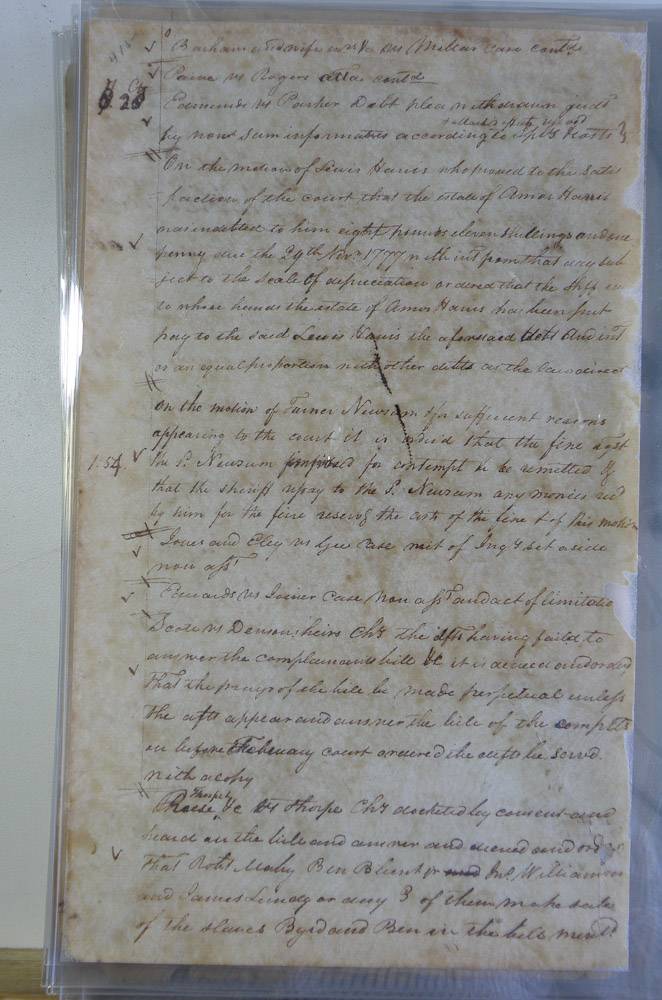 Barham and wife vs Millar case contd
Paine vs Rogers contd
Edmunds vs Parker Debt plea withdrawn judt
by sum informatus according to
On the motion of Lewis Harris who proved to the satis
faction of the court that the estate of Amos Harris
was indebted to him eight pounds eleven shillings and one
penny due the 29th Novr 1777 with int from that day sub
ject to the scale of depreciation ordered that the
to whose hands the estate of Amos Harris has been put
pay to the said Lewis Harris the aforesaid debt and int
or an equal proportion with other debts as the law direct
On the motion of Turner Newsum & for sufficient reasons
appearing to the court it is ordered that the fine agst
1:54. the Sd. Newsum for contempt be remitted &
that the sheriff repay to the Sd. Newsum any monies recd
by him for the fine reserving the costs of the fine & of this motion
Jones and Eley vs Case writ of Inqy set aside
non asst
Edwards vs Joiner Case non asst and act of limitatio
Scott vs Densons heirs Chy the dfts having faild to
answer the complainants bill &c it is decreed and ordrd
that the prayr of the bill be made perpetual unless
the dfts appear and answer the bill of the complts
on before February court ordered the defts be servd.
with a copy
Thorpe
&c vs Thorpe Chy docketed by consent and
heard on the bill and answer and decreed and ord
that Robt Ben Blunt jr Jno. Williamson
and James Lundy or any 3 of them make sale
of the slaves Byrd and Ben in the bill mentd